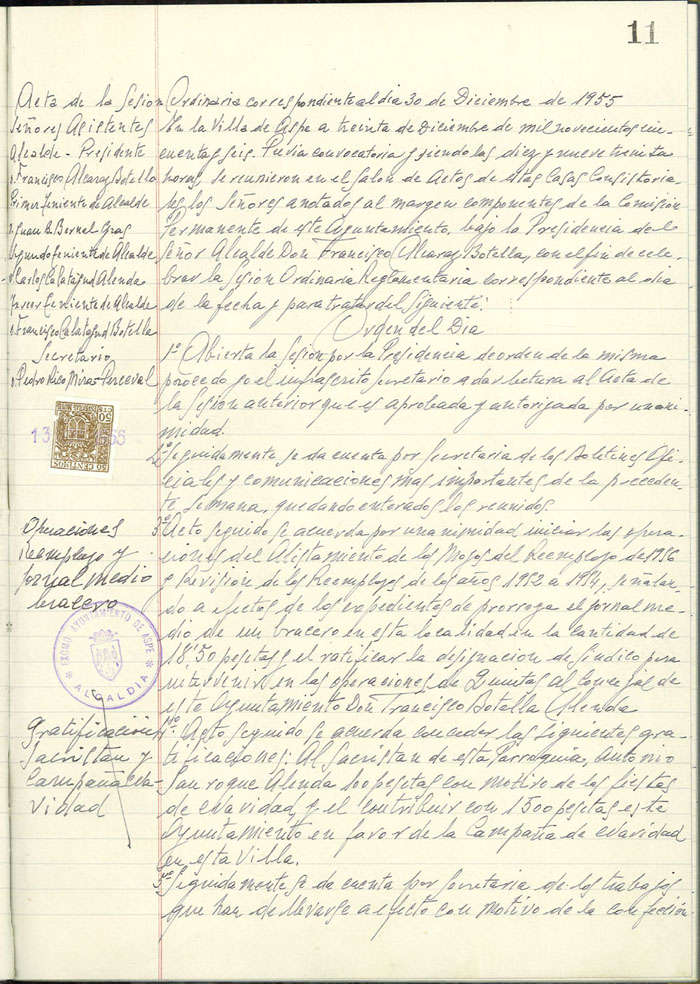 11
Acta de la Sesion Ordinaria correspondiente al dia 30 de Diciembre de 1955
Señores Asistentes
Alcalde - Presidente
D. Francisco Alcaraz Botella
Primer Teniente de Alcalde
D. Juan B. Bernal Gras
Segundo Teniente de Alcalde
D. Carlos Calatayud Alenda
Tercer Teniente de Alcalde
D. Francisco Calatayud Botella
Secretario
D. Pedro Rico Miras-Perceval
En la Villa de Aspe a treinta de Diciembre de mil novecientos cin-
cuenta y seis. Previa convocatoria y siendo las diez y nueve treinta
horas, se reunieron en el Salon de Actos de estas Casas Consistoria-
les los Señores anotados al margen componentes de la Comision
Permanente de este Ayuntamiento, bajo la Presidencia del
Señor Alcalde Don Francisco Alcaraz Botella, con el fin de cele-
brar la Sesion Ordinaria Reglamentaria correspondiente al dia
de la fecha y para tratar del siguiente:
Orden del Dia
1º Abierta la Sesion por la Presidencia de orden de la misma
procedo yo el infrascrito Secretario a dar lectura al Acta de
la Sesion anterior que es aprobada y autorizada por unani-
midad.
2º Seguidamente se da cuenta por Secretaria de los Boletines Ofi-
ciales y comunicaciones mas importantes de la preceden-
te semana, quedando enterados los reunidos.
50 CENTIMOS
50 CTS
13
Operaciones
Reemplazo y
jornal medio
bracero
3º Acto seguido se acuerda por unanimidad iniciar las opera-
ciones del Alistamiento de los Mozos del Reemplazo de 1956
y Revisión de los Reemplazos de los años 1952 a 1954, señalan-
do a efectos de los expedientes de prorroga el jornal me-
dio de un bracero en esta localidad en la cantidad de
18'50 pesetas y el ratificar la designacion de Sindico para
intervenir en las operaciones de Quintas al Concejal de
este Ayuntamiento Don Francisco Botella Alenda
EXCMO. AYUNTAMIENTO DE ASPE
* ALCALDIA *
Gratificación
Sacristan y
Campaña Na-
vidad
4º. Acto seguido se acuerda conceder las siguientes gra-
tificaciones: Al Sacristan de esta Parroquia, Antonio
Sanroque Alenda 100 pesetas con motivo de las fiestas
de Navidad y el contribuir con 1500 pesetas este
Ayuntamiento en favor de la Campaña de Navidad
en esta Villa.
5º Seguidamente se da cuenta por Secretaria de los trabajos
que han de llevarse a efecto con motivo de la confección